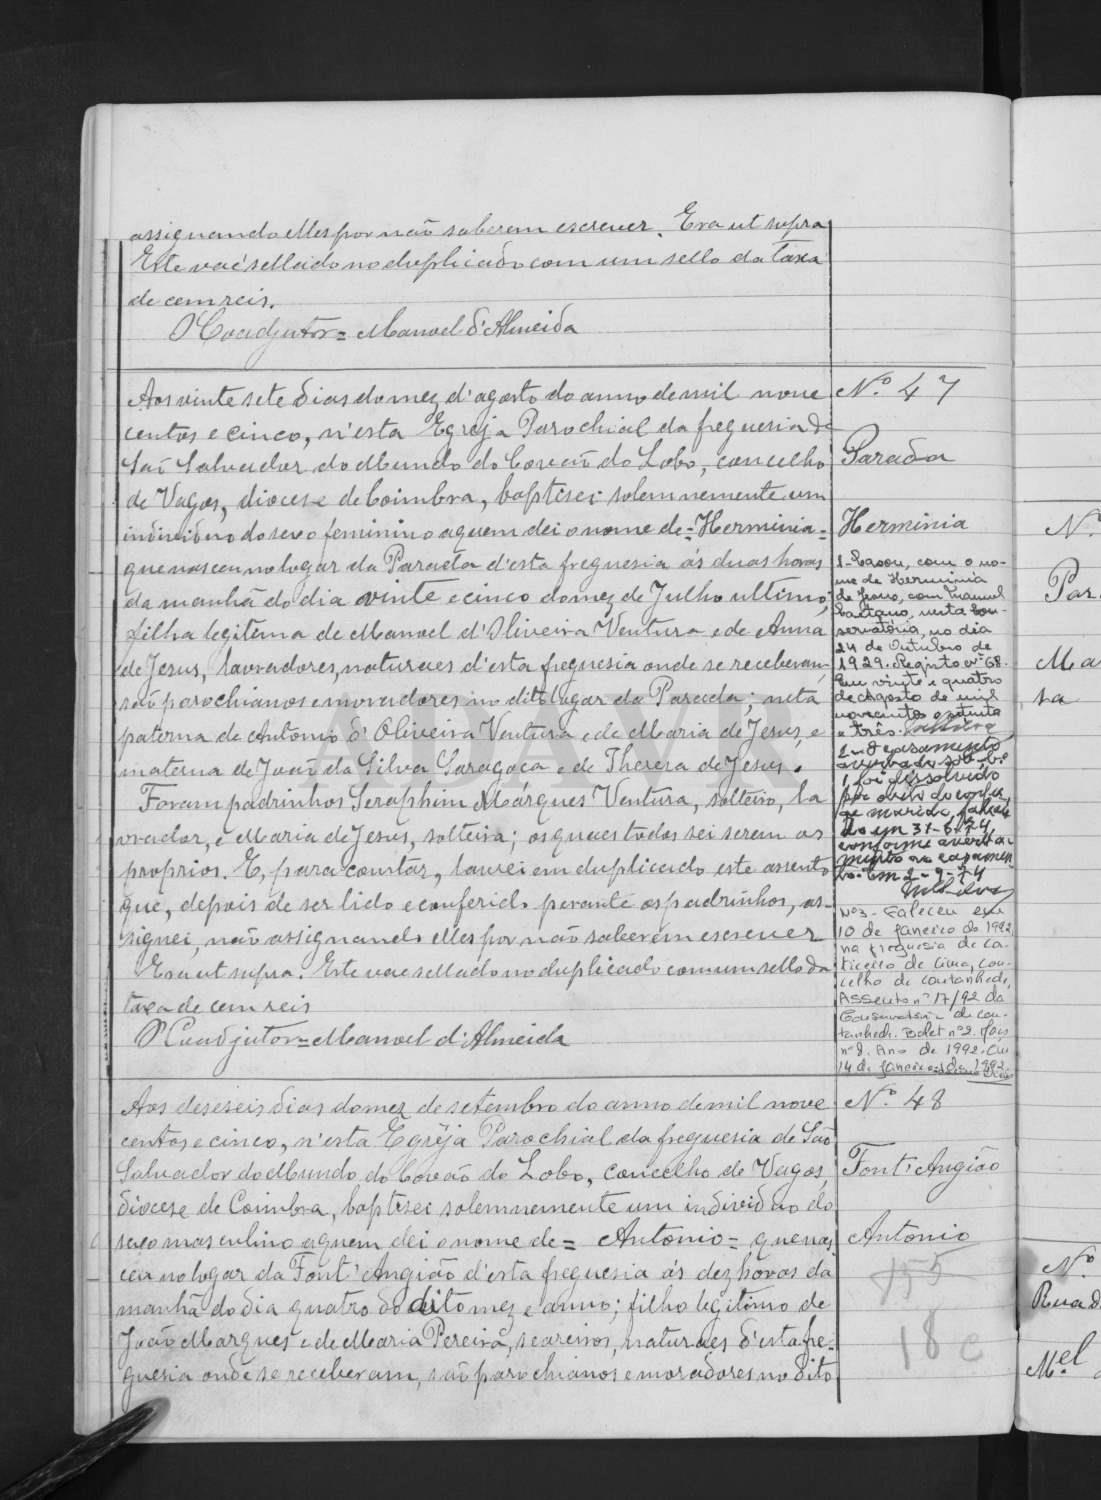 assignando elles por não saberem escrever. Era ut supra
Este vae sellado no duplicado com um sello da taxa
de cem reis.
O Coadjutor = Manoel d'Almeida
Aos vinte sete dias do mez d'agosto do anno de mil nove
centos e cinco, n'esta Egreja Parochial da freguesia de
São Salvador do Mundo do Covão do Lobo, concelho
de Vagos, diocese de Coimbra, baptisei solemnemente um
individuo do sexo feminino a quem dei o nome de = Herminia =
que nasceu no logar da Parada d'esta freguesia ás duas horas
da manhã do dia vinte e cinco do mez de Julho ultimo,
filha legitima de Manoel d'Oliveira Ventura e de Anna
de Jesus, lavradores, naturaes d'esta freguesia onde se receberam
são parochianos e moradores no dito logar da Parada; neta
paterna de Antonio d'Oliveira Ventura e de Maria de Jesus, e
materna de João da Silva Saragoça e de Thereza de Jesus.
Foram padrinhos Seraphim Márques Ventura, solteiro, la
vrador, e Maria de Jesus, solteira; os quaes todos sei serem os
proprios. E, para constar, lavrei em duplicado este assento
que, depois de ser lido e conferido perante os padrinhos, as-
signei, não assignando elles por não saberem escrever
Era ut supra. Este vae sellado no duplicado com um sello da
taxa de cem reis
O Coadjutor = Manoel d'Almeida
Nº 47
Parada
Herminia
1-Casou, com o no-
me de Herminia
de Jesus, com Manuel
Caetano, nesta Con-
servatória, no dia
24 de Outubro de
1929. Registo nº 68.
Em vinte e quatro
de Agosto de mil
novecentos e setenta
e três.
2-O casamento
averbado sob nº
1 foi dissolvido
por óbito do conju-
ge marido, faleci
do em 31-5-74,
conforme averba
mento no casamen
to. Em 2-9-74
Nº3 - Faleceu em
10 de Janeiro de 1992,
na freguesia de Ca-
ticeiro de Cima, con-
celho de Cantanhede,
Assento nº 17/92 da
Conservatória de Can-
tanhede. Bolet nº 2. Maço
nº 1. Ano de 1992. Em
14 de Janeiro de 1992.
Aos deseseis dias do mez de setembro do anno de mil nove
centos e cinco, n'esta Egrêja Parochial da freguesia de São
Salvador do Mundo do Covão do Lobo, concelho de Vagos,
diocese de Coimbra, baptisei solemnemente um individuo do
sexo masculino a quem dei o nome de = Antonio = que nas
ceu no logar da Font'Angião d'esta freguesia ás dez horas da
manhã do dia quatro do dito mez e anno; filho legitimo de
João Marques e de Maria Pereira, seareiros, naturaes d'esta fre-
guesia onde se receberam, são parochianos e moradores no dito
Nº 48
Font'Angião
Antonio
155
18 c
Nº
Par
Ma
ta
Nº
Rua d
Mel